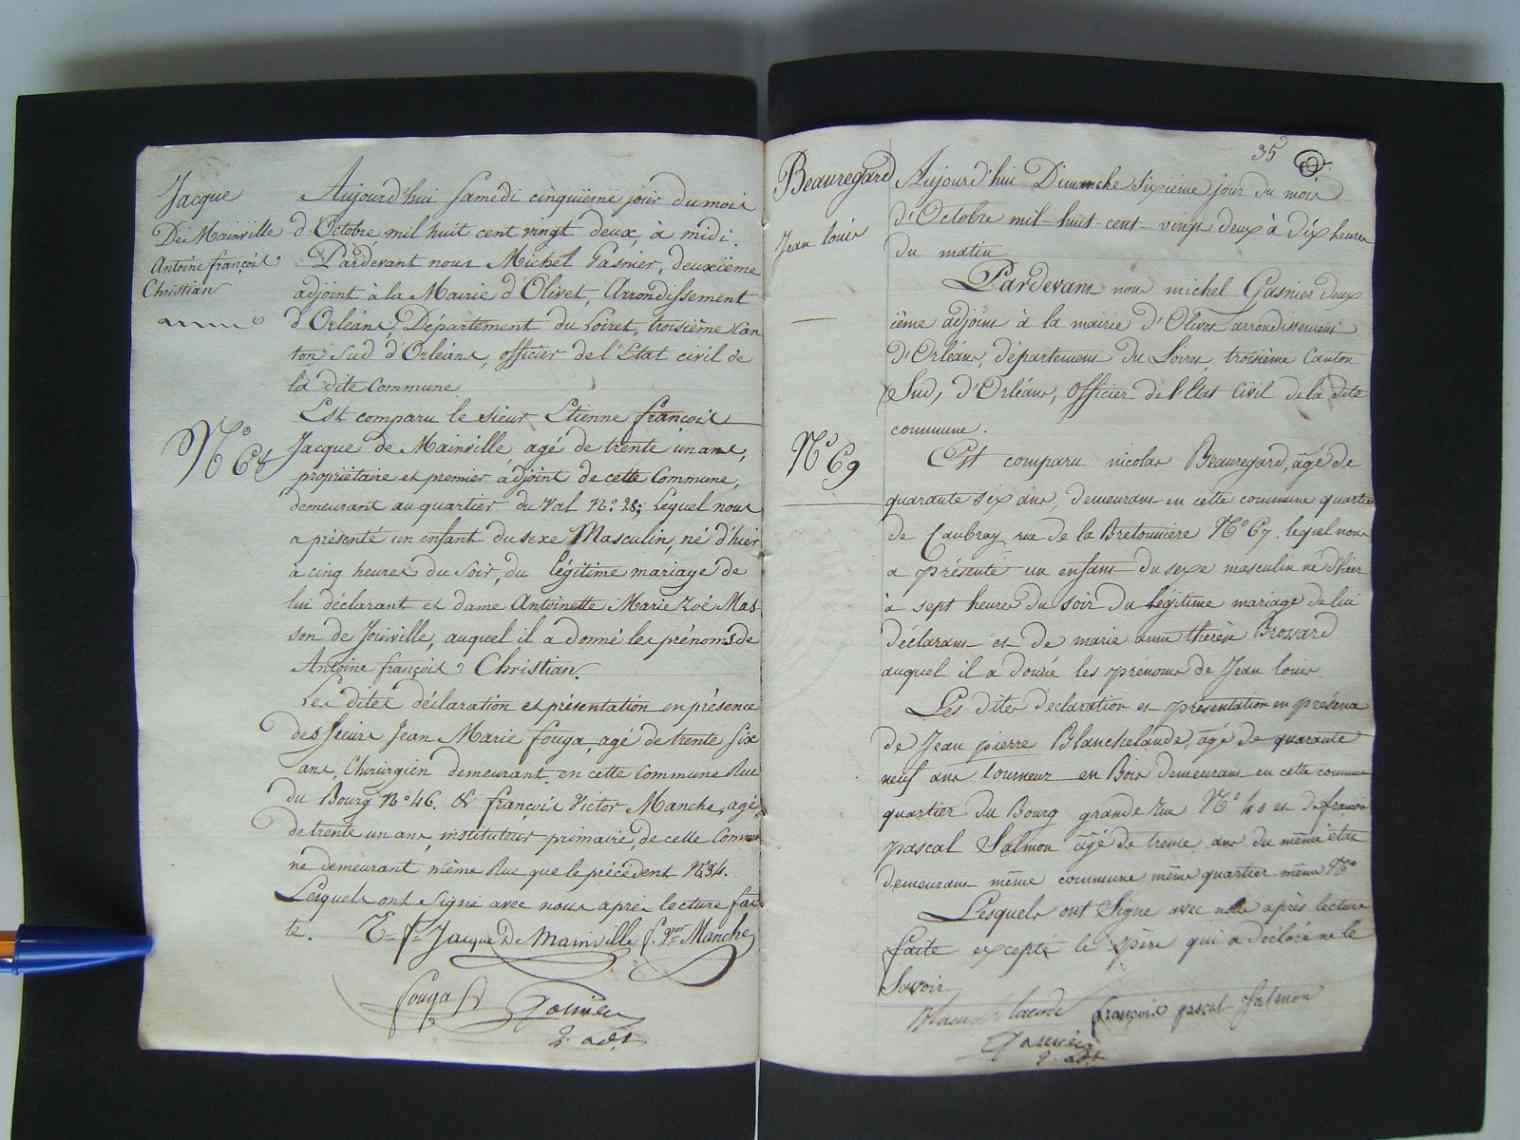 Jacque
De Mainville
Antoine françois
Christian
N.º 68
Aujourd'hui samedi cinquième jour du mois
d'Octobre mil huit cent vingt deux, à midi.
Pardevant nous Michel Gasnier, deuxième
adjoint à la Mairie d'Olivet, Arrondissement
d'Orléans, Département du Loiret, troisième Can
ton Sud d'Orléans, officier de l'Etat civil de
la dite Commune.
Est comparu le sieur Etienne françois
Jacque de Mainville agé de trente un ans,
propriétaire et premier adjoint de cette Commune,
demeurant au quartier du Val N.º 28; Lequel nous
a présenté un enfant du sexe Masculin, né d'hier
à cinq heures du soir, du légitime mariage de
lui déclarant et dame Antoinette Marie Zoé Mas
son de Joinville, auquel il a donné les prénoms de
Antoine françois Christian.
Les dites déclaration et présentation en présence
des sieurs Jean Marie fouga, agé de trente six
ans, Chirurgien demeurant en cette Commune Rue
du Bourg N.º 46. & françois Victor Manche, agé
de trente un ans, instituteur primaire de cette Commu
ne demeurant même Rue que le précédent N.º 34.
Lesquels ont signé avec nous après lecture fai
te. E. f. Jacque De Mainville f. Manche
fouga Gasnier
2. adjt
35
Beauregard
Jean louis
N.º 69
Aujourd'hui Dimanche sixième jour du mois
d'Octobre mil-huit-cent-vingt deux à dix heures
du matin
Pardevant nous michel Gasnier deux
ième adjoint à la mairie d'Olivet arrondissement
d'Orléans, département du Loiret, troisième Canton
Sud, d'Orléans, officier de l'Etat Civil de la dite
commune.
Est comparu nicolas Beauregard, âgé de
quarante six ans, demeurant en cette commune quartier
de Caubray rue de la Bretonnière N.º 67. lequel nous
a présenté un enfant du sexe masculin né d'hier
à sept heures du soir du légitime mariage de lui
déclarant et de marie anne thérèse Brossard
auquel il a donné les prénoms de Jean louis
Les dites declaration et présentation en présence
de Jean pierre Blanchelande, âgé de quarante
neuf ans tourneur en Bois demeurant en cette commune
quartier du Bourg grande rue N.º 40 et de françois
pascal Salmon âgé de trente ans du même état
demeurant même commune même quartier même N.º
Lesquels ont signé avec nous après lecture
faite excepté le père qui a déclaré ne le
savoir
françois pascal Salmon
Gasnier
2. adjt